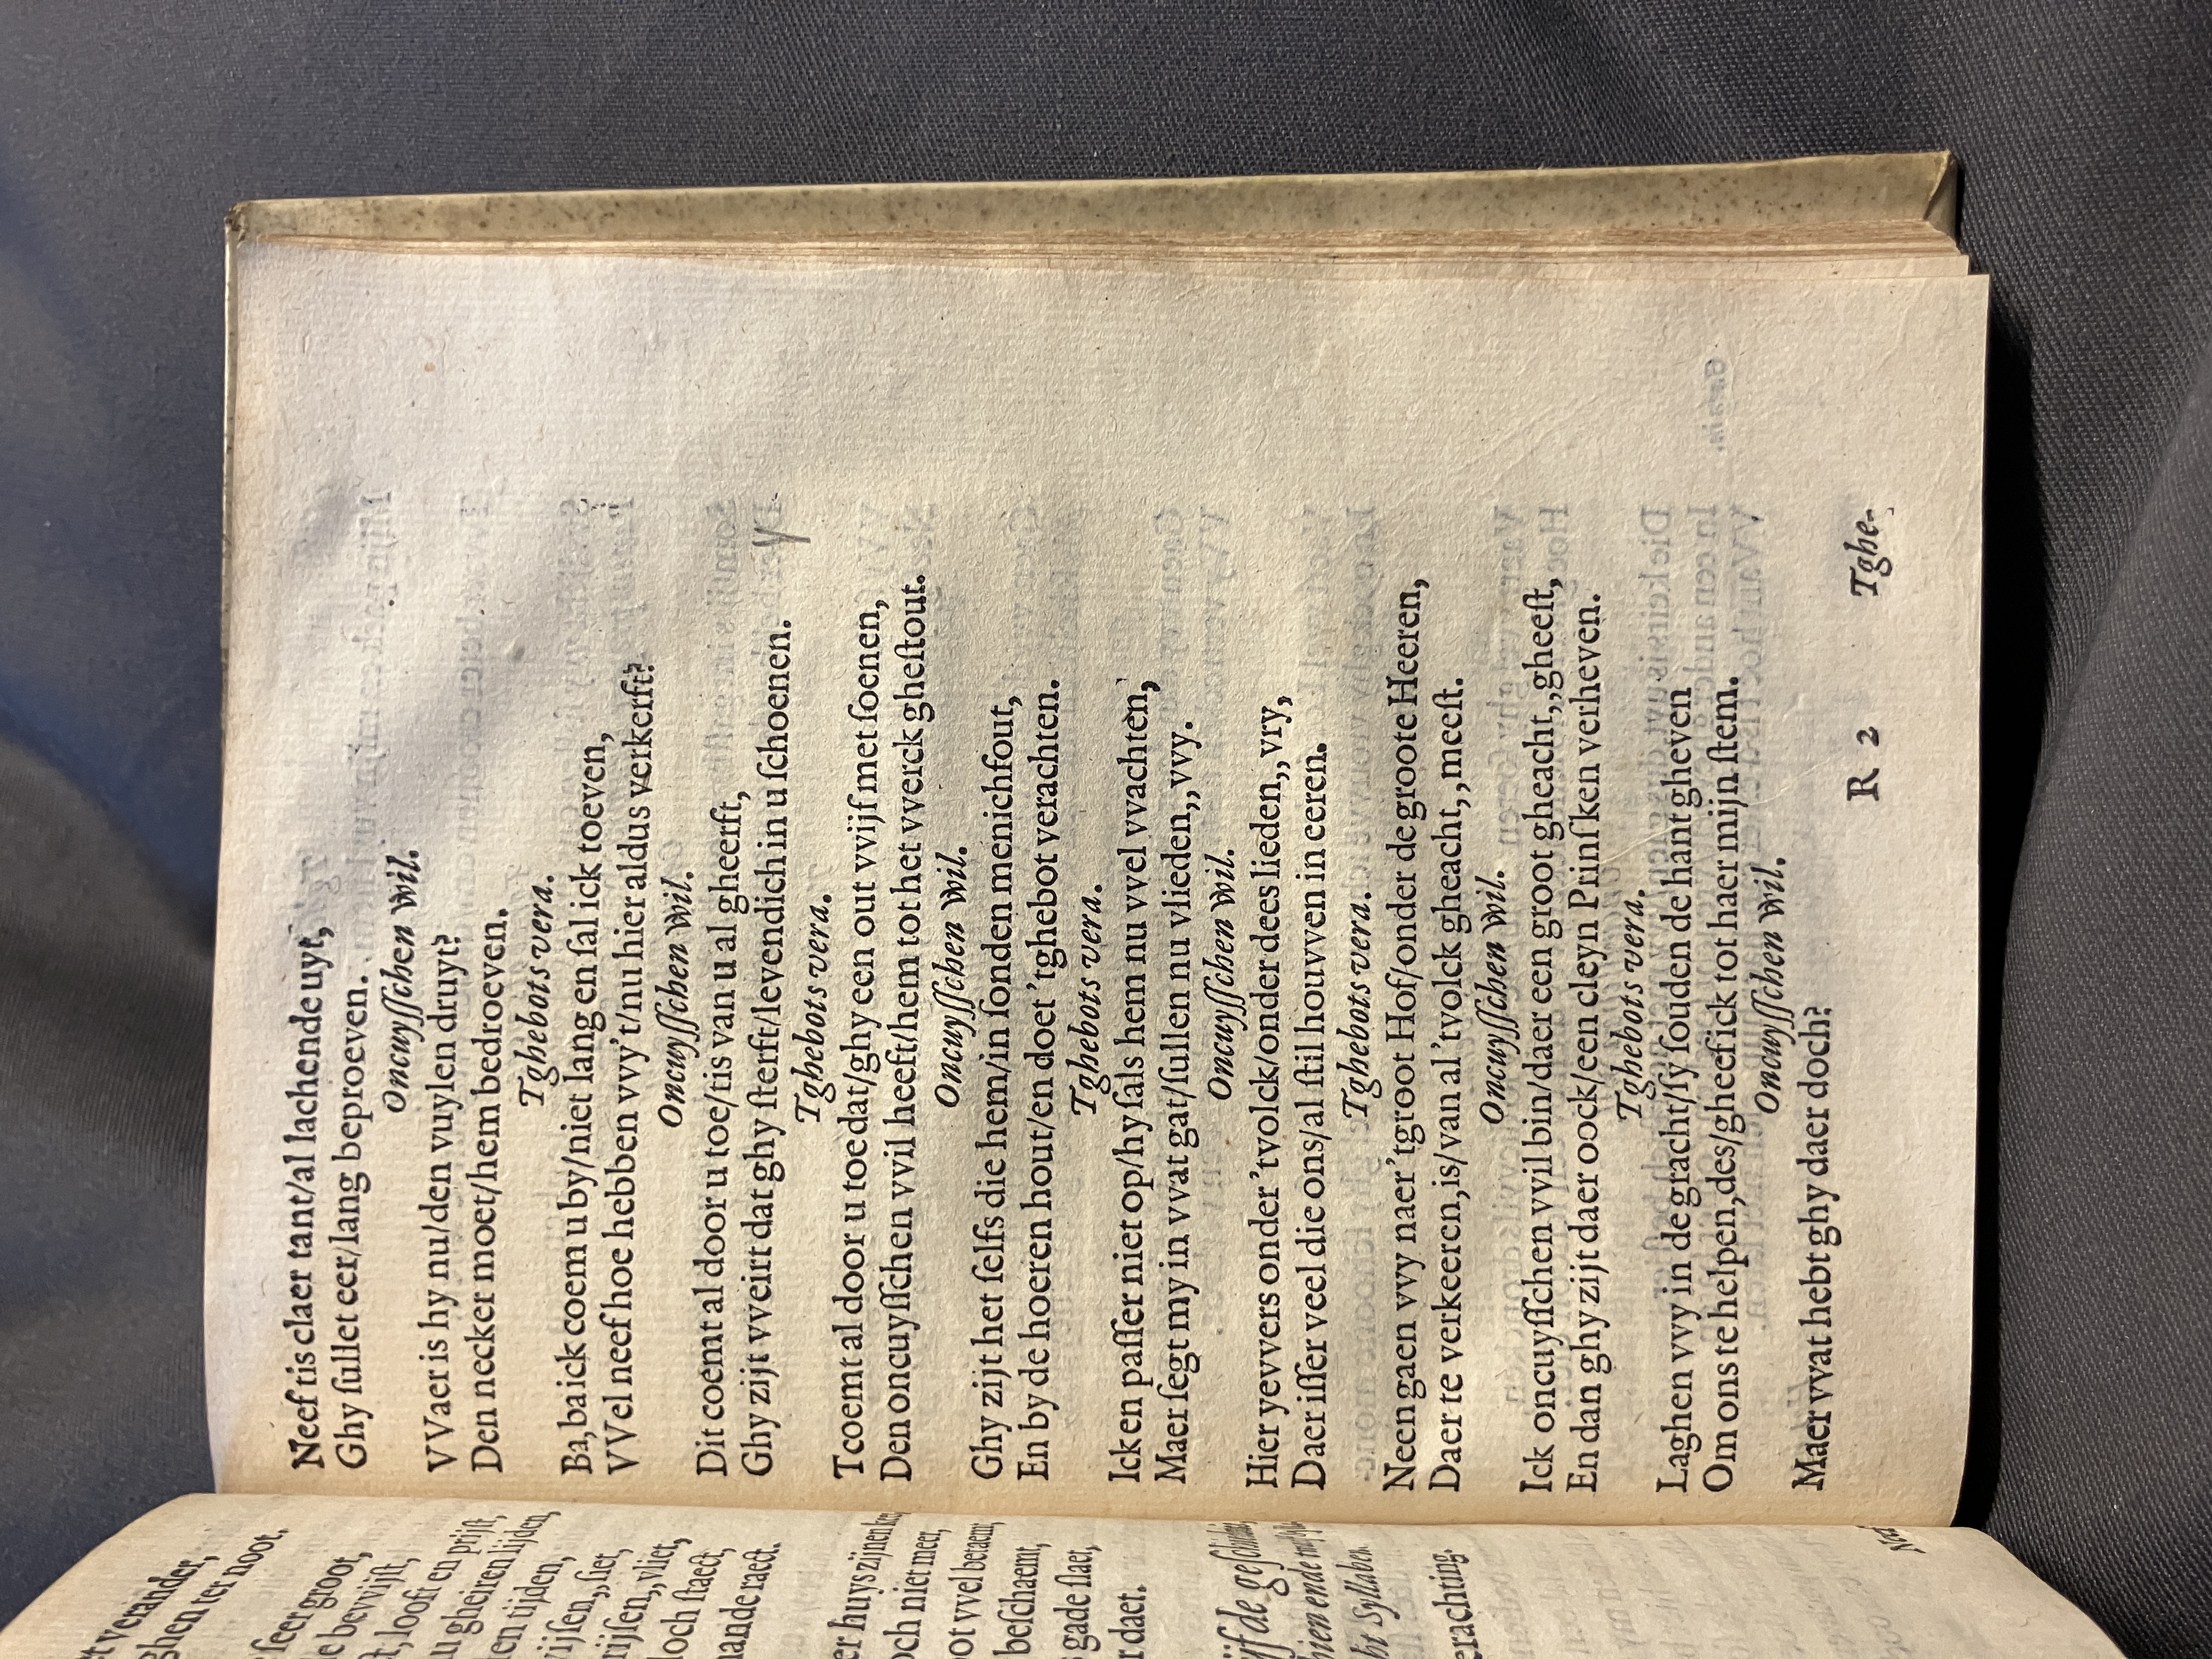 st verander,
ghen ter noot.
seer groot,
e bevvijst,
t, looft en prijst,
u gheiren lijden,
en tijden,
vijsen,, siet,
rijsen,, vliet,
och staect,
ande raect.
er huys zijnen
och niet mer,
ot vvel betaemt,
beschaemt,
gade slaet,
r daet.
ijf de
hien ende
ht Syllaben.
erachting.
Neef tis claer tant/al lachende uyt,
Ghy sullet eer/lang beproeven.
Oncuysschen wil.
VVaer is hy nu/den vuylen druyt?
Den necker moet/hem bedroeven.
Tghebots vera.
Ba, ba ick coem u by/niet lang en sal ick toeven,
VVel neef hoe hebben vvy't/nu hier aldus verkerft?
Oncuysschen wil.
Dit coemt al door u toe/tis van u al gheerft,
Ghy zijt vveirt dat ghy sterft/levendich in u schoenen.
Tghebots vera.
Tcoemt al door u toe dat/ghy een out vvijf met soenen,
Den oncuysschen vvil heeft/hem tot het vverck ghestout.
Oncuysschen wil.
Ghy zijt het selfs die hem/in sonden menichfout,
En by de hoeren hout/en doet 'tghebot verachten.
Tghebots vera.
Ick en passer niet op/hy sals hem nu vvel vvachten,
Maer segt my in vvat gat/sullen nu vlieden,, vvy.
Oncuysschen wil.
Hier yevvers onder 'tvolck/onder dees lieden,, vry,
Daer isser veel die ons/al stil houvven in eeren.
Tghebots vera.
Neen gaen vvy naer 'tgroot Hof/onder de groote Heeren,
Daer te verkeeren, is/van al 'tvolck gheacht,, meest.
Oncuysschen wil.
Ick oncuysschen vvil bin/daer een groot gheacht,, gheest,
En dan ghy zijt daer oock/een cleyn Prinsken verheven.
Tghebots vera.
Laghen vvy in de gracht/sy souden de hant gheven
Om ons te helpen, des/gheef ick tot haer mijn stem.
Oncuysschen wil.
Maer vvat hebt ghy daer doch?
R 2
Tghe-